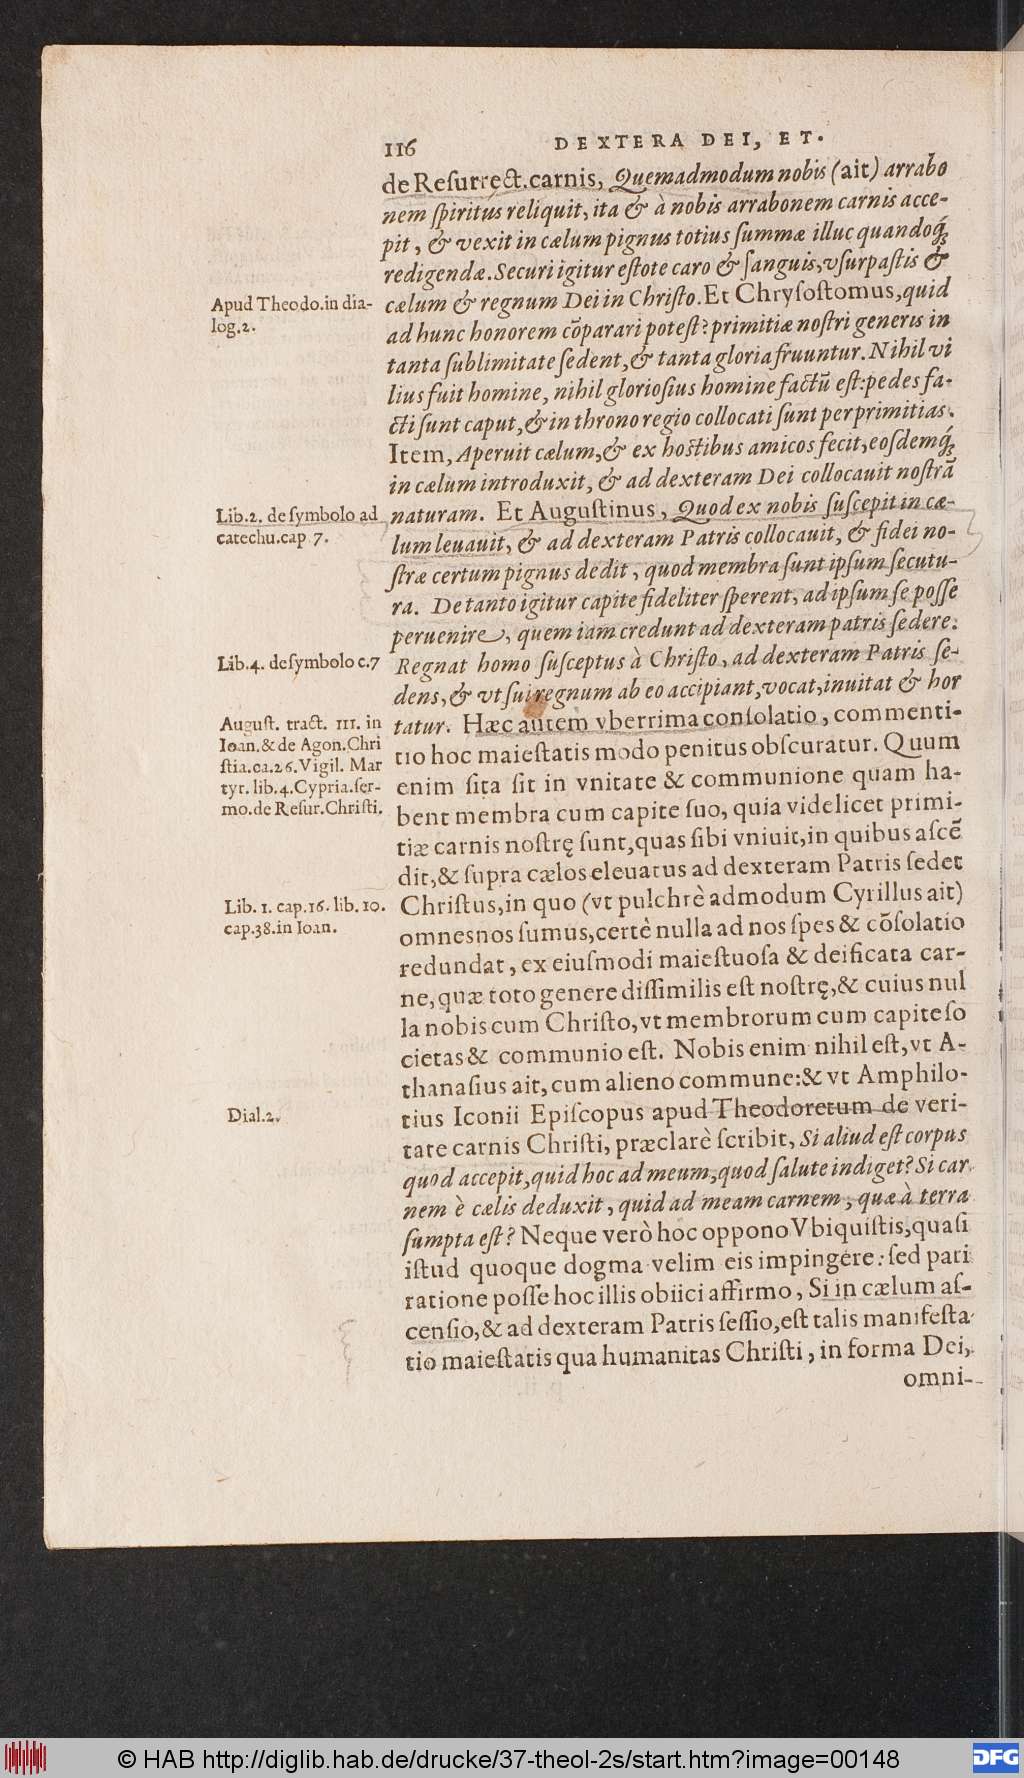 116 DEXTERA DEI, ET.
de Reſurrect. carnis, Quemadmodum nobis (ait) arrabo
nem ſpiritus reliquit, ita & à nobis arrabonem carnis acce-
pit, & vexit in cælum pignus totius ſummæ illuc quandoq́;
redigendæ. Securi igitur eſtote caro & ſanguis, vſurpaſtis &
Apud Theodo. in dia-
log. 2.
cælum & regnum Dei in Chriſto. Et Chryſoſtomus, quid
ad hunc honorem cōparari poteſt? primitiæ noſtri generis in
tanta ſublimitate ſedent, & tanta gloria fruuntur. Nihil vi
lius fuit homine, nihil glorioſius homine factū eſt: pedes fa-
cti ſunt caput, & in throno regio collocati ſunt per primitias.
Item, Aperuit cælum, & ex hoſtibus amicos fecit, eoſdemq́;
in cælum introduxit, & ad dexteram Dei collocauit noſtrā
Lib. 2. de ſymbolo ad
catechu. cap 7.
naturam. Et Auguſtinus, Quod ex nobis ſuſcepit in cæ-
lum leuauit, & ad dexteram Patris collocauit, & fidei no-
ſtræ certum pignus dedit, quod membra ſunt ipſum ſecutu-
ra. De tanto igitur capite fideliter ſperent, ad ipſum ſe poſſe
peruenire, quem iam credunt ad dexteram patris ſedere.
Lib. 4. de ſymbolo c. 7
Regnat homo ſuſceptus à Chriſto, ad dexteram Patris ſe-
dens, & vt ſui regnum ab eo accipiant, vocat, inuitat & hor
Auguſt. tract. 111. in
Ioan. & de Agon. Chri
ſtia. ca. 26. Vigil. Mar
tyr. lib. 4. Cypria. ſer-
mo. de Reſur. Chriſti.
tatur. Hæc autem vberrima conſolatio, commenti-
tio hoc maieſtatis modo penitus obſcuratur. Quum
enim ſita ſit in vnitate & communione quam ha-
bent membra cum capite ſuo, quia videlicet primi-
tiæ carnis noſtrę ſunt, quas ſibi vniuit, in quibus aſcē
dit, & ſupra cælos eleuatus ad dexteram Patris ſedet
Lib. 1. cap. 16. lib. 10.
cap. 38. in Ioan.
Chriſtus, in quo (vt pulchrè admodum Cyrillus ait)
omnes nos ſumus, certè nulla ad nos ſpes & cōſolatio
redundat, ex eiuſmodi maieſtuoſa & deificata car-
ne, quæ toto genere diſſimilis eſt noſtrę, & cuius nul
la nobis cum Chriſto, vt membrorum cum capite ſo
cietas & communio eſt. Nobis enim nihil eſt, vt A-
thanaſius ait, cum alieno commune: & vt Amphilo-
Dial. 2.
tius Iconii Epiſcopus apud Theodoretum de veri-
tate carnis Chriſti, præclarè ſcribit, Si aliud eſt corpus
quod accepit, quid hoc ad meum, quod ſalute indiget? Si car
nem è cælis deduxit, quid ad meam carnem, quæ à terra
ſumpta eſt? Neque verò hoc oppono Vbiquiſtis, quaſi
iſtud quoque dogma velim eis impingere: ſed pari
ratione poſſe hoc illis obiici affirmo, Si in cælum aſ-
cenſio, & ad dexteram Patris ſeſſio, eſt talis manifeſta
tio maieſtatis qua humanitas Chriſti, in forma Dei,
omni-
© HAB http://diglib.hab.de/drucke/37-theol-2s/start.htm?image=00148
DFG